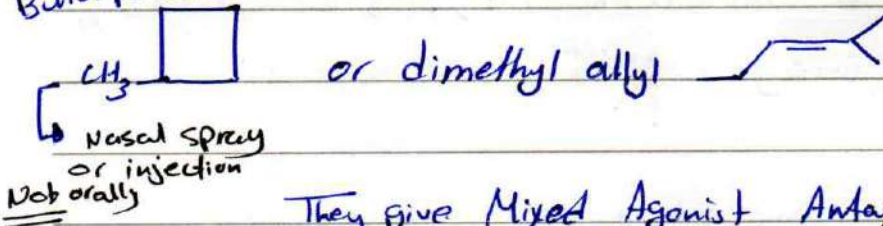 CH3
or dimethyl allyl
Nasal spray
or injection
Not orally
They give Mixed Agonist